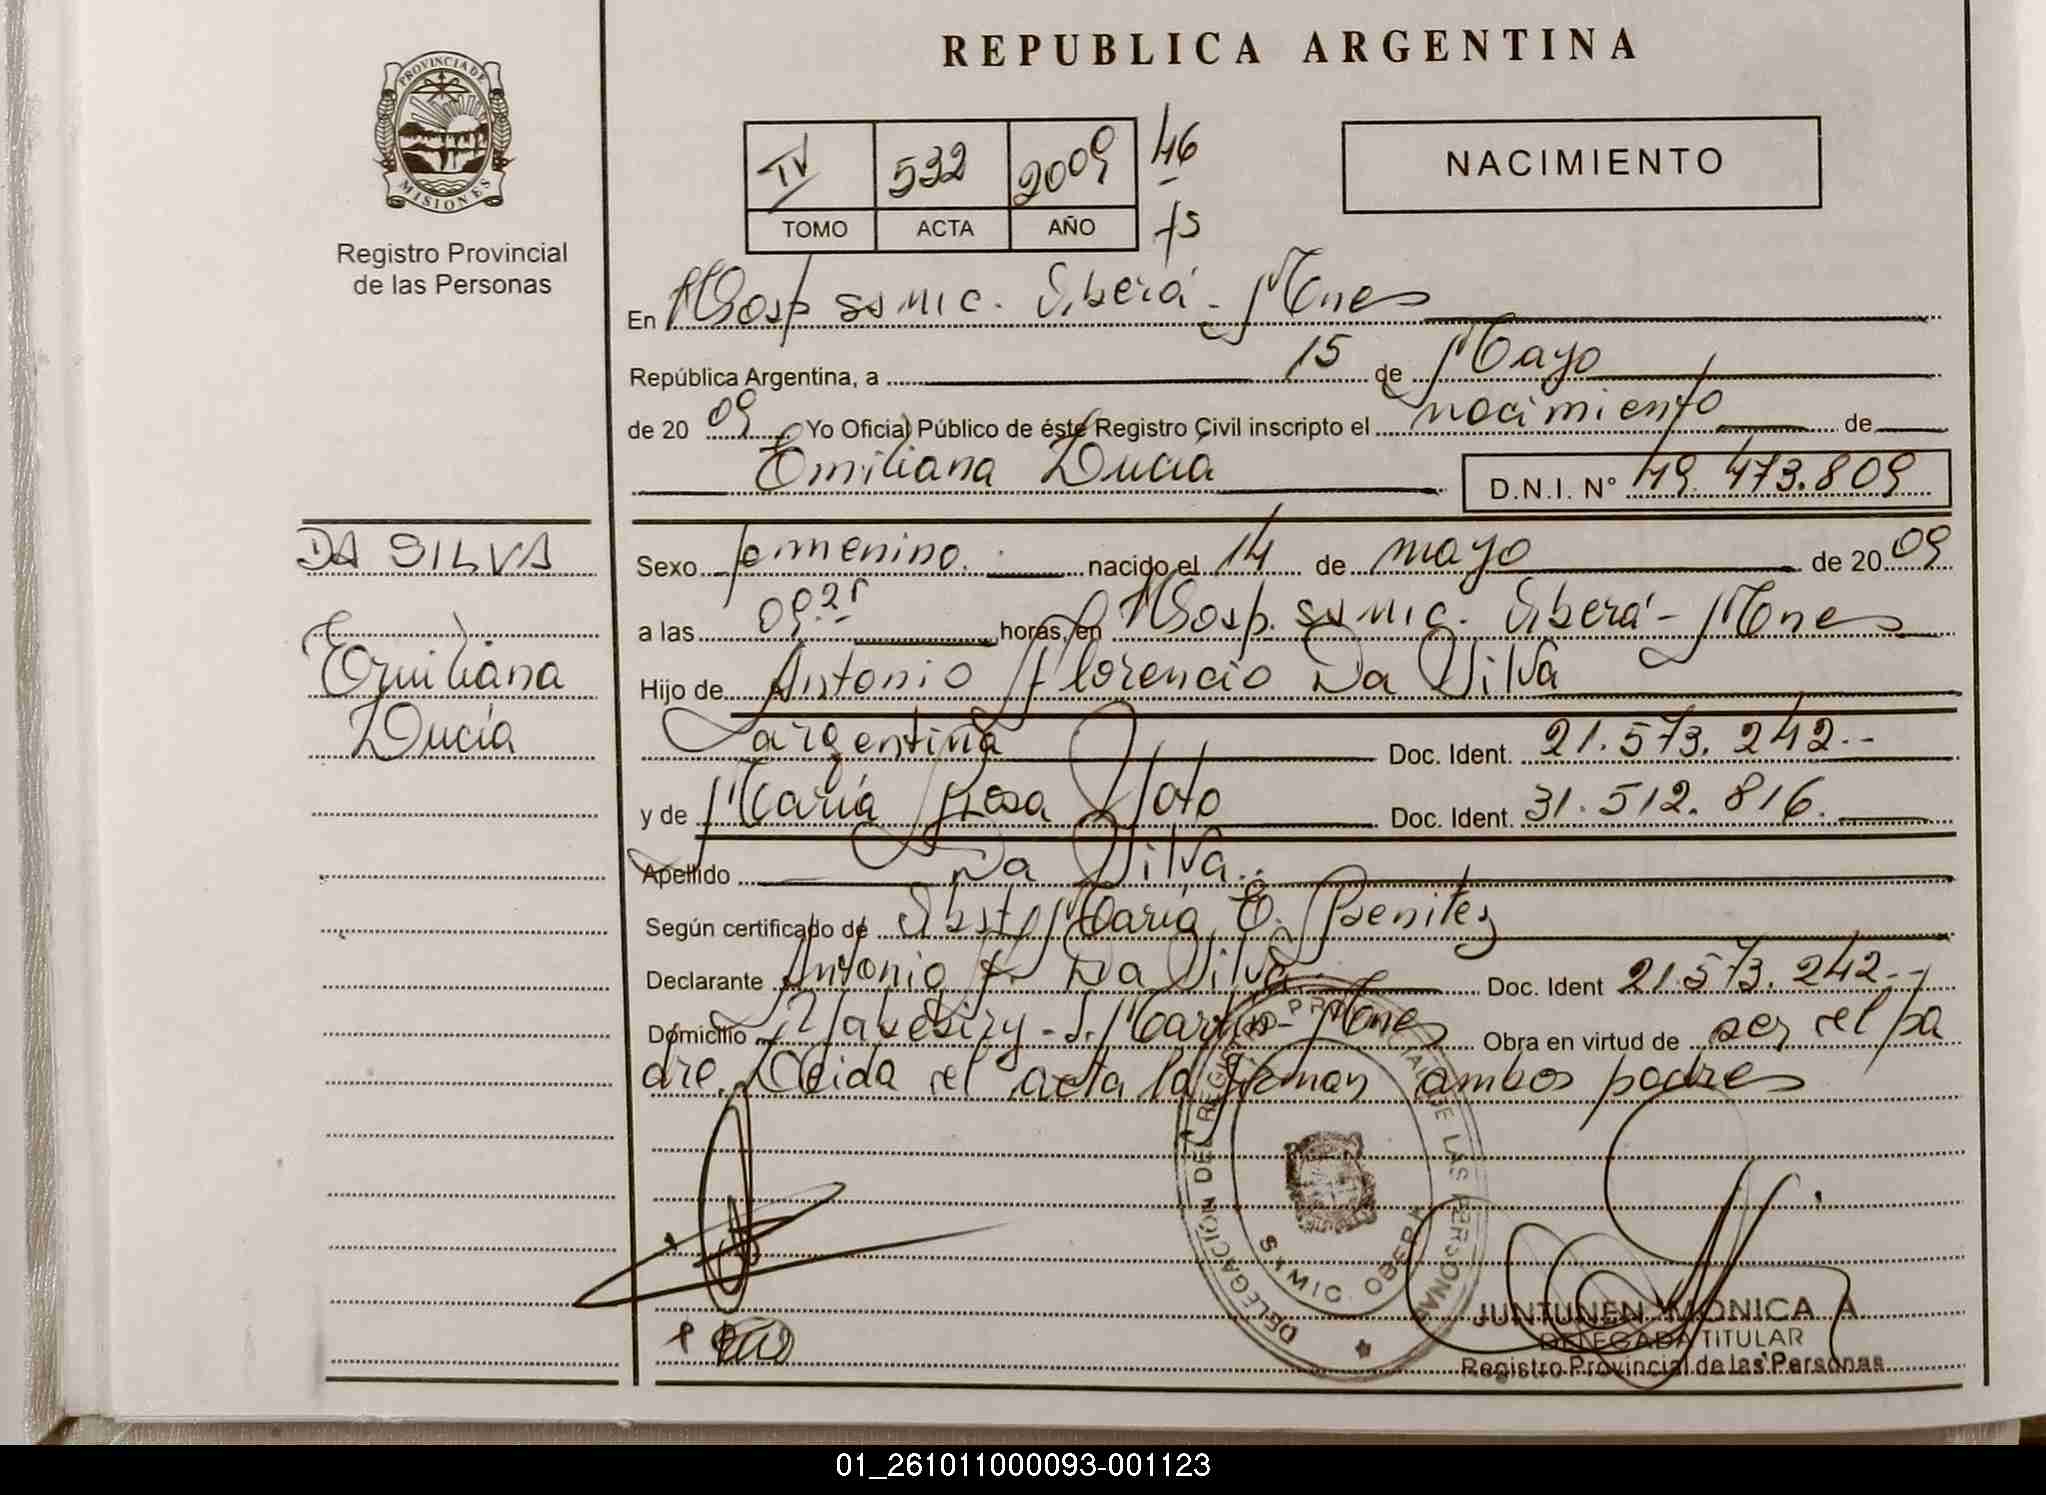 REPUBLICA ARGENTINA
PROVINCIA DE
MISIONES
Registro Provincial
de las Personas
IV 532 2009 46
TOMO ACTA AÑO 75
NACIMIENTO
En Hosp ss mic. Oberá - Mnes
República Argentina, a 15 de Mayo
de 2009 Yo Oficial Público de éste Registro Civil inscripto el nacimiento de
Emiliana Lucía D.N.I. N° 49.473.809
DA SILVA
Emiliana
Lucía
Sexo femenino. nacido el 14 de mayo de 2009
a las 09 horas, en Hosp. ss mic. Oberá - Mnes
Hijo de Antonio Florencio Da Silva
argentina Doc. Ident. 21.573.242--
y de María Rosa Doc. Ident. 31.512.816.
Apellido Da Silva
Según certificado de Obst María E. Benitez
Declarante Antonio F. Da Silva Doc. Ident 21.573.242--
Domicilio - S. Martín - Mnes Obra en virtud de ser el pa
dre. Leida el acta la firman ambos padres
DELEGACION DEL REGISTRO PROVINCIAL DE LAS PERSONAS
OBERA
JUNTUNEN MONICA A
DELEGADA TITULAR
Registro Provincial de las Personas
01_261011000093-001123